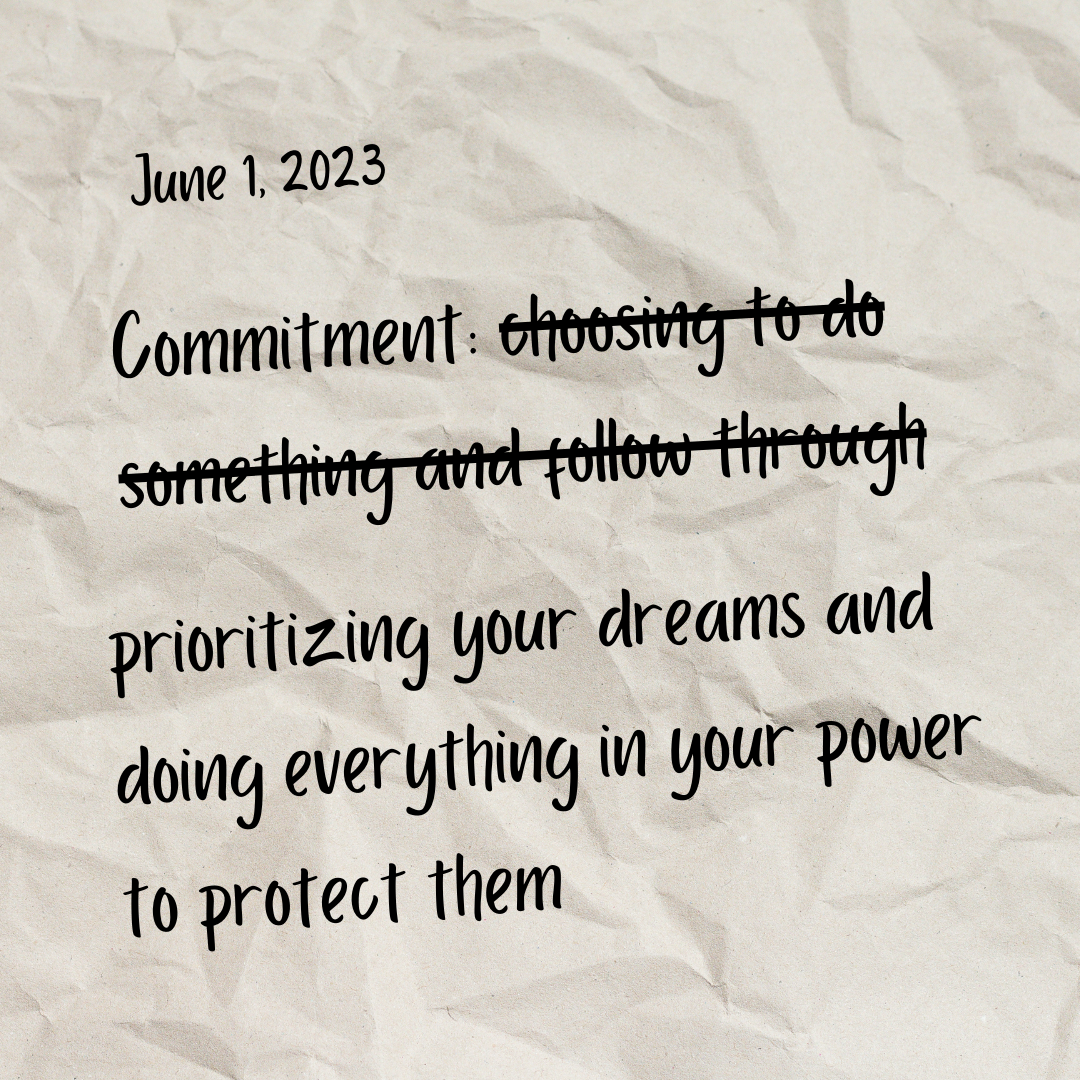 June 1, 2023
Commitment: choosing to do
something and follow through
prioritizing your dreams and
doing everything in your power
to protect them